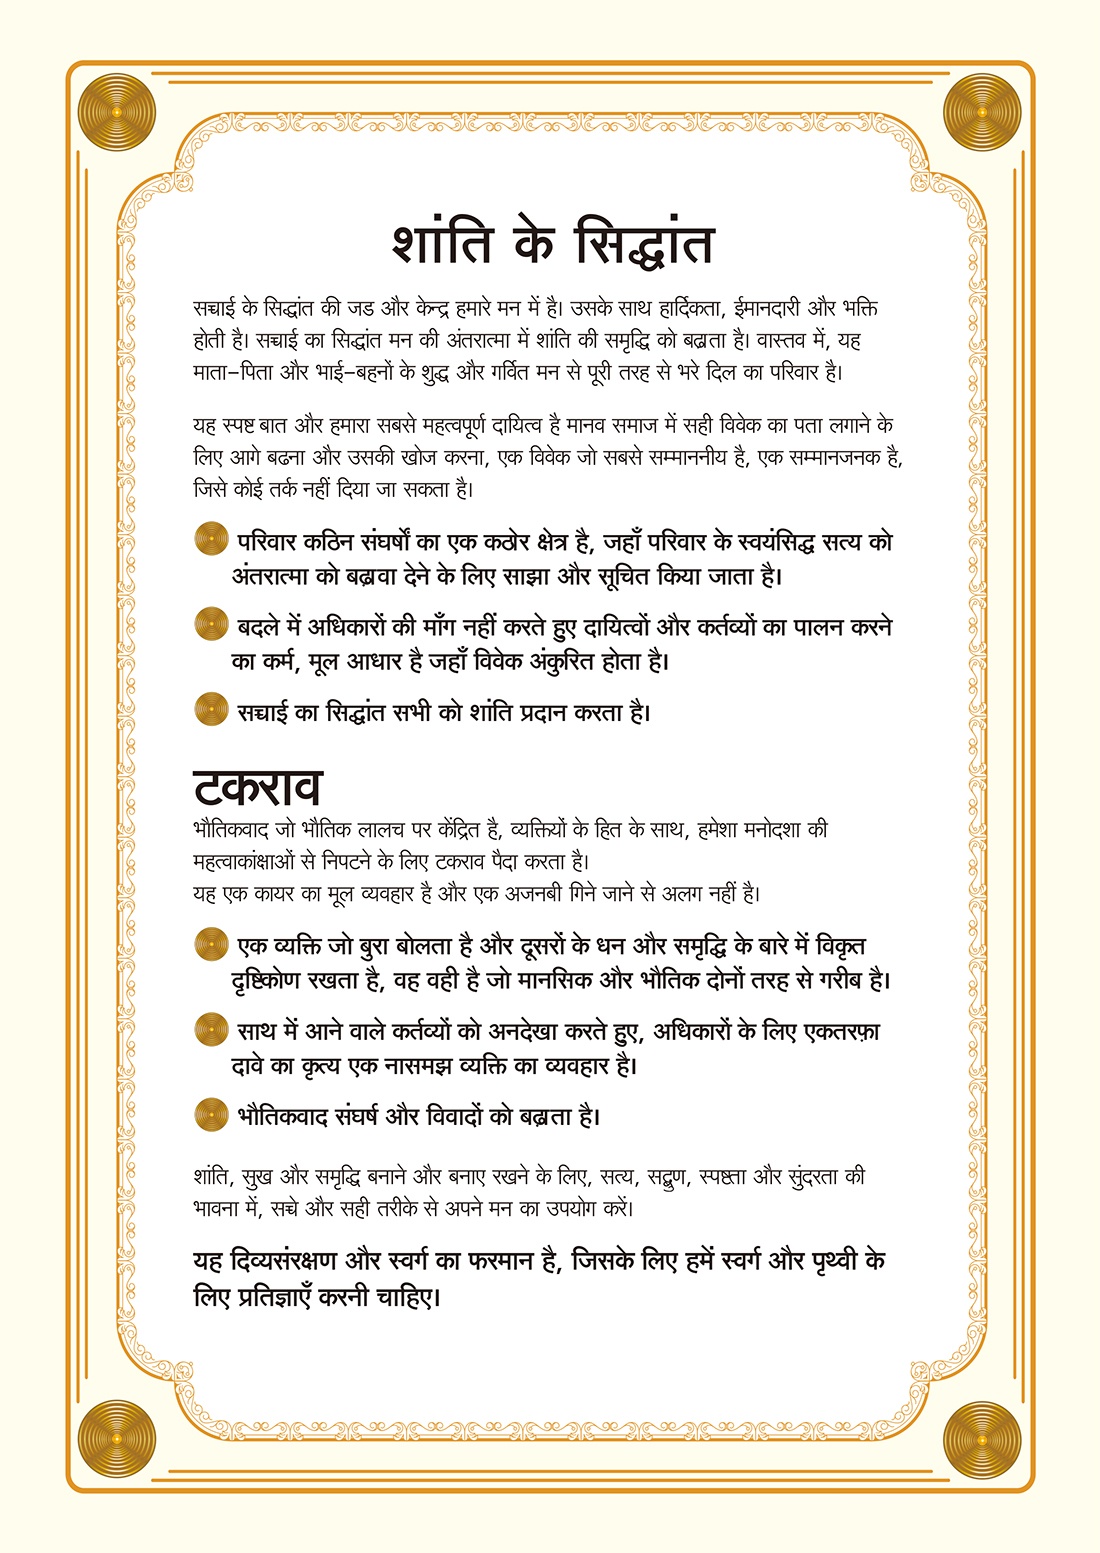 शांति के सिद्धांत
सच्चाई के सिद्धांत की जड और केन्द्र हमारे मन में है। उसके साथ हार्दिकता, ईमानदारी और भक्ति
होती है। सच्चाई का सिद्धांत मन की अंतरात्मा में शांति की समृद्धि को बढ़ाता है। वास्तव में, यह
माता–पिता और भाई–बहनों के शुद्ध और गर्वित मन से पूरी तरह से भरे दिल का परिवार है।
यह स्पष्ट बात और हमारा सबसे महत्वपूर्ण दायित्व है मानव समाज में सही विवेक का पता लगाने के
लिए आगे बढना और उसकी खोज करना, एक विवेक जो सबसे सम्माननीय है, एक सम्मानजनक है,
जिसे कोई तर्क नहीं दिया जा सकता है।
परिवार कठिन संघर्षों का एक कठोर क्षेत्र है, जहाँ परिवार के स्वयंसिद्ध सत्य को
अंतरात्मा को बढ़ावा देने के लिए साझा और सूचित किया जाता है।
बदले में अधिकारों की माँग नहीं करते हुए दायित्वों और कर्तव्यों का पालन करने
का कर्म, मूल आधार है जहाँ विवेक अंकुरित होता है।
सच्चाई का सिद्धांत सभी को शांति प्रदान करता है।
टकराव
भौतिकवाद जो भौतिक लालच पर केंद्रित है, व्यक्तियों के हित के साथ, हमेशा मनोदशा की
महत्वाकांक्षाओं से निपटने के लिए टकराव पैदा करता है।
यह एक कायर का मूल व्यवहार है और एक अजनबी गिने जाने से अलग नहीं है।
एक व्यक्ति जो बुरा बोलता है और दूसरों के धन और समृद्धि के बारे में विकृत
दृष्टिकोण रखता है, वह वही है जो मानसिक और भौतिक दोनों तरह से गरीब है।
साथ में आने वाले कर्तव्यों को अनदेखा करते हुए, अधिकारों के लिए एकतरफ़ा
दावे का कृत्य एक नासमझ व्यक्ति का व्यवहार है।
भौतिकवाद संघर्ष और विवादों को बढ़ाता है।
शांति, सुख और समृद्धि बनाने और बनाए रखने के लिए, सत्य, सद्गुण, स्पष्टता और सुंदरता की
भावना में, सच्चे और सही तरीके से अपने मन का उपयोग करें।
यह दिव्यसंरक्षण और स्वर्ग का फरमान है, जिसके लिए हमें स्वर्ग और पृथ्वी के
लिए प्रतिज्ञाएँ करनी चाहिए।